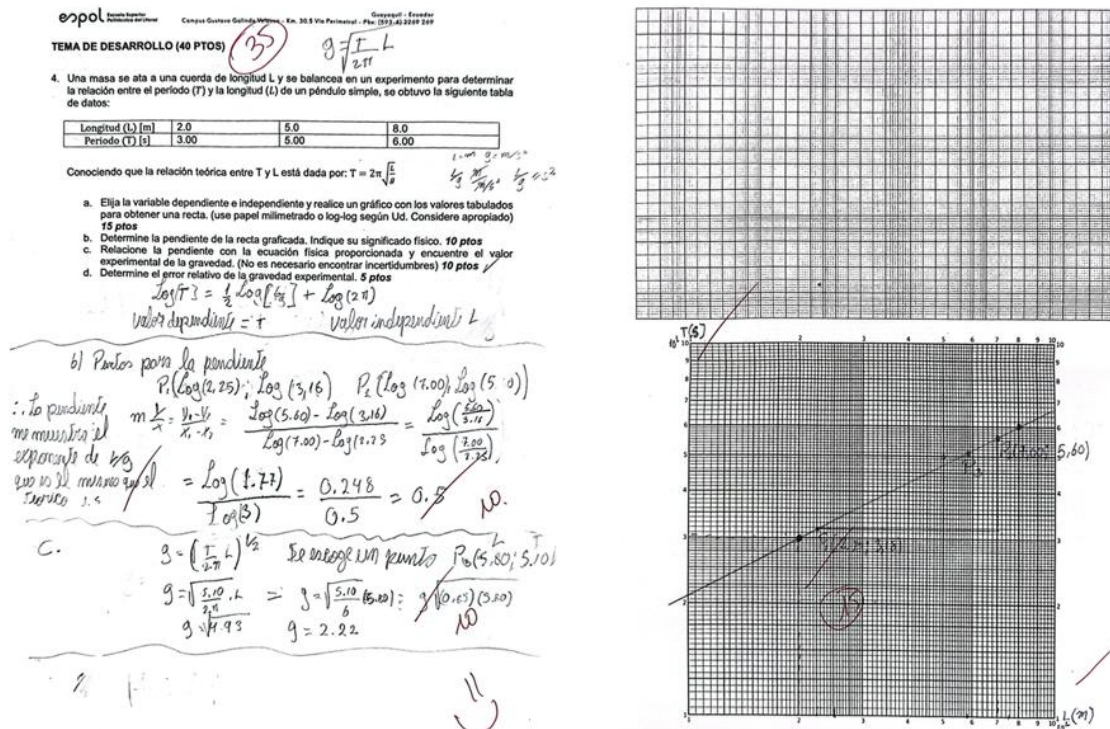 espol Escuela Superior Politécnica del Litoral
Campus Gustavo Galindo Velasco - Km. 30.5 Vía Perimetral - Pbx: (593-4) 2269 269
Guayaquil - Ecuador
TEMA DE DESARROLLO (40 PTOS) 35
g = √(T/2π) L
4. Una masa se ata a una cuerda de longitud L y se balancea en un experimento para determinar
la relación entre el período (T) y la longitud (L) de un péndulo simple, se obtuvo la siguiente tabla
de datos:
Longitud (L) [m] 2.0 5.0 8.0
Periodo (T) [s] 3.00 5.00 6.00
L=m g=m/s²
Conociendo que la relación teórica entre T y L está dada por: T = 2π √(L/g)
L/g m/m/s² L/g = s²
a. Elija la variable dependiente e independiente y realice un gráfico con los valores tabulados
para obtener una recta. (use papel milimetrado o log-log según Ud. Considere apropiado)
15 ptos
b. Determine la pendiente de la recta graficada. Indique su significado físico. 10 ptos
c. Relacione la pendiente con la ecuación física proporcionada y encuentre el valor
experimental de la gravedad. (No es necesario encontrar incertidumbres) 10 ptos
d. Determine el error relativo de la gravedad experimental. 5 ptos
Log[T] = 1/2 Log[L/g] + Log(2π)
valor dependiente = T valor independiente L
b) Puntos para la pendiente
P₁(Log(2,25); Log(3,16) P₂(Log(7.00); Log(5. 0))
∴ La pendiente
me muestra el
exponente de L/g
que es el mismo que el
teorico
m y/x = = Log(5.60) - Log(3,16) / Log(7.00) - Log(2.25 = Log(5.60/3.16) / Log(7.00/2.25)
= Log(1.77) / Log(3) = 0.248 / 0.5 = 0.5
10.
C.
g = (T/2π L)^1/2 Se escoge un punto P₃(5,80; 5.10)
L T
g = √(5.10/2π . L = g = √(5.10/6 (5.80) = g √(0.85)(5.80)
g = √4.93 g = 2.22
10
T(s)
10
9
8
7
6
5
4
3
2
1
2 3 4 5 6 7 8 9 10
P₂(7,00; 5,60)
P₃
15
1 2 3 4 5 6 7 8 9 10
L(m)